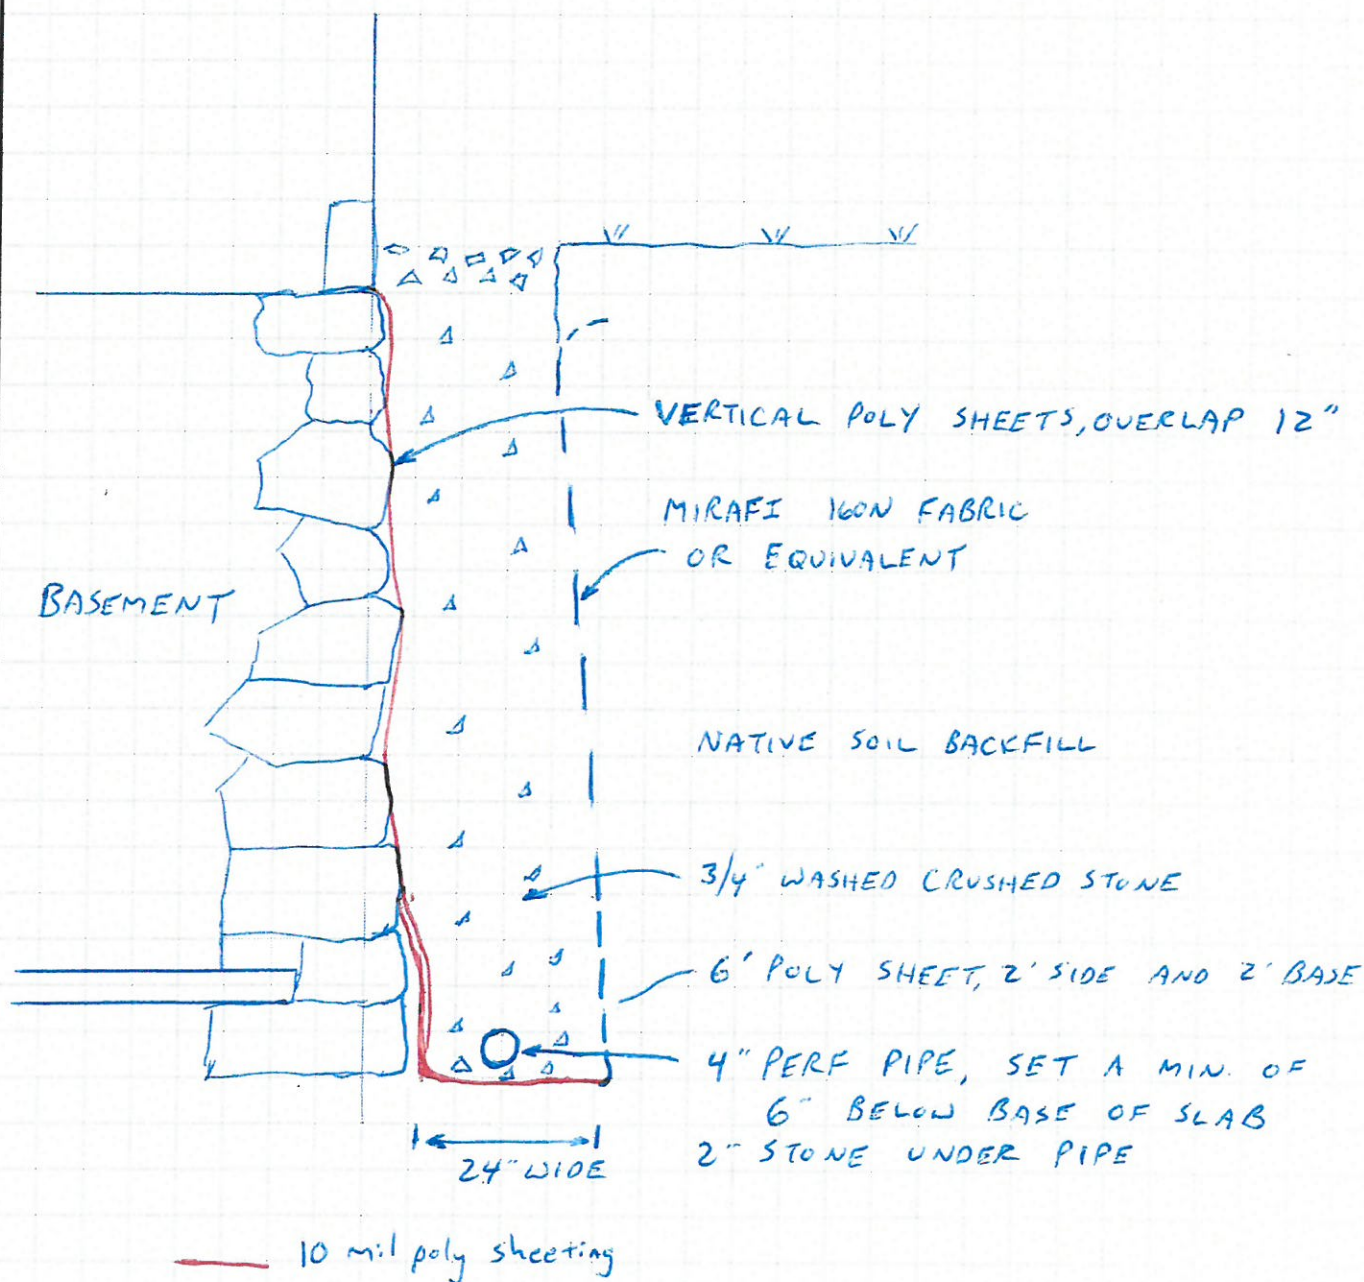 VERTICAL POLY SHEETS, OVERLAP 12"
MIRAFI 160N FABRIC
OR EQUIVALENT
BASEMENT
NATIVE SOIL BACKFILL
3/4" WASHED CRUSHED STONE
6' POLY SHEET, 2' SIDE AND 2' BASE
4" PERF PIPE, SET A MIN. OF
6" BELOW BASE OF SLAB
2" STONE UNDER PIPE
24" WIDE
10 mil poly sheeting